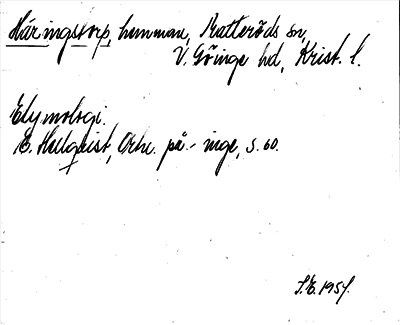 Häringstorp, hemman, Matteröds sn,
V. Göinge hd, Krist. l.
Etymologi.
E. Hellquist, Ortn. på -inge, s. 60.
S.E. 1954.